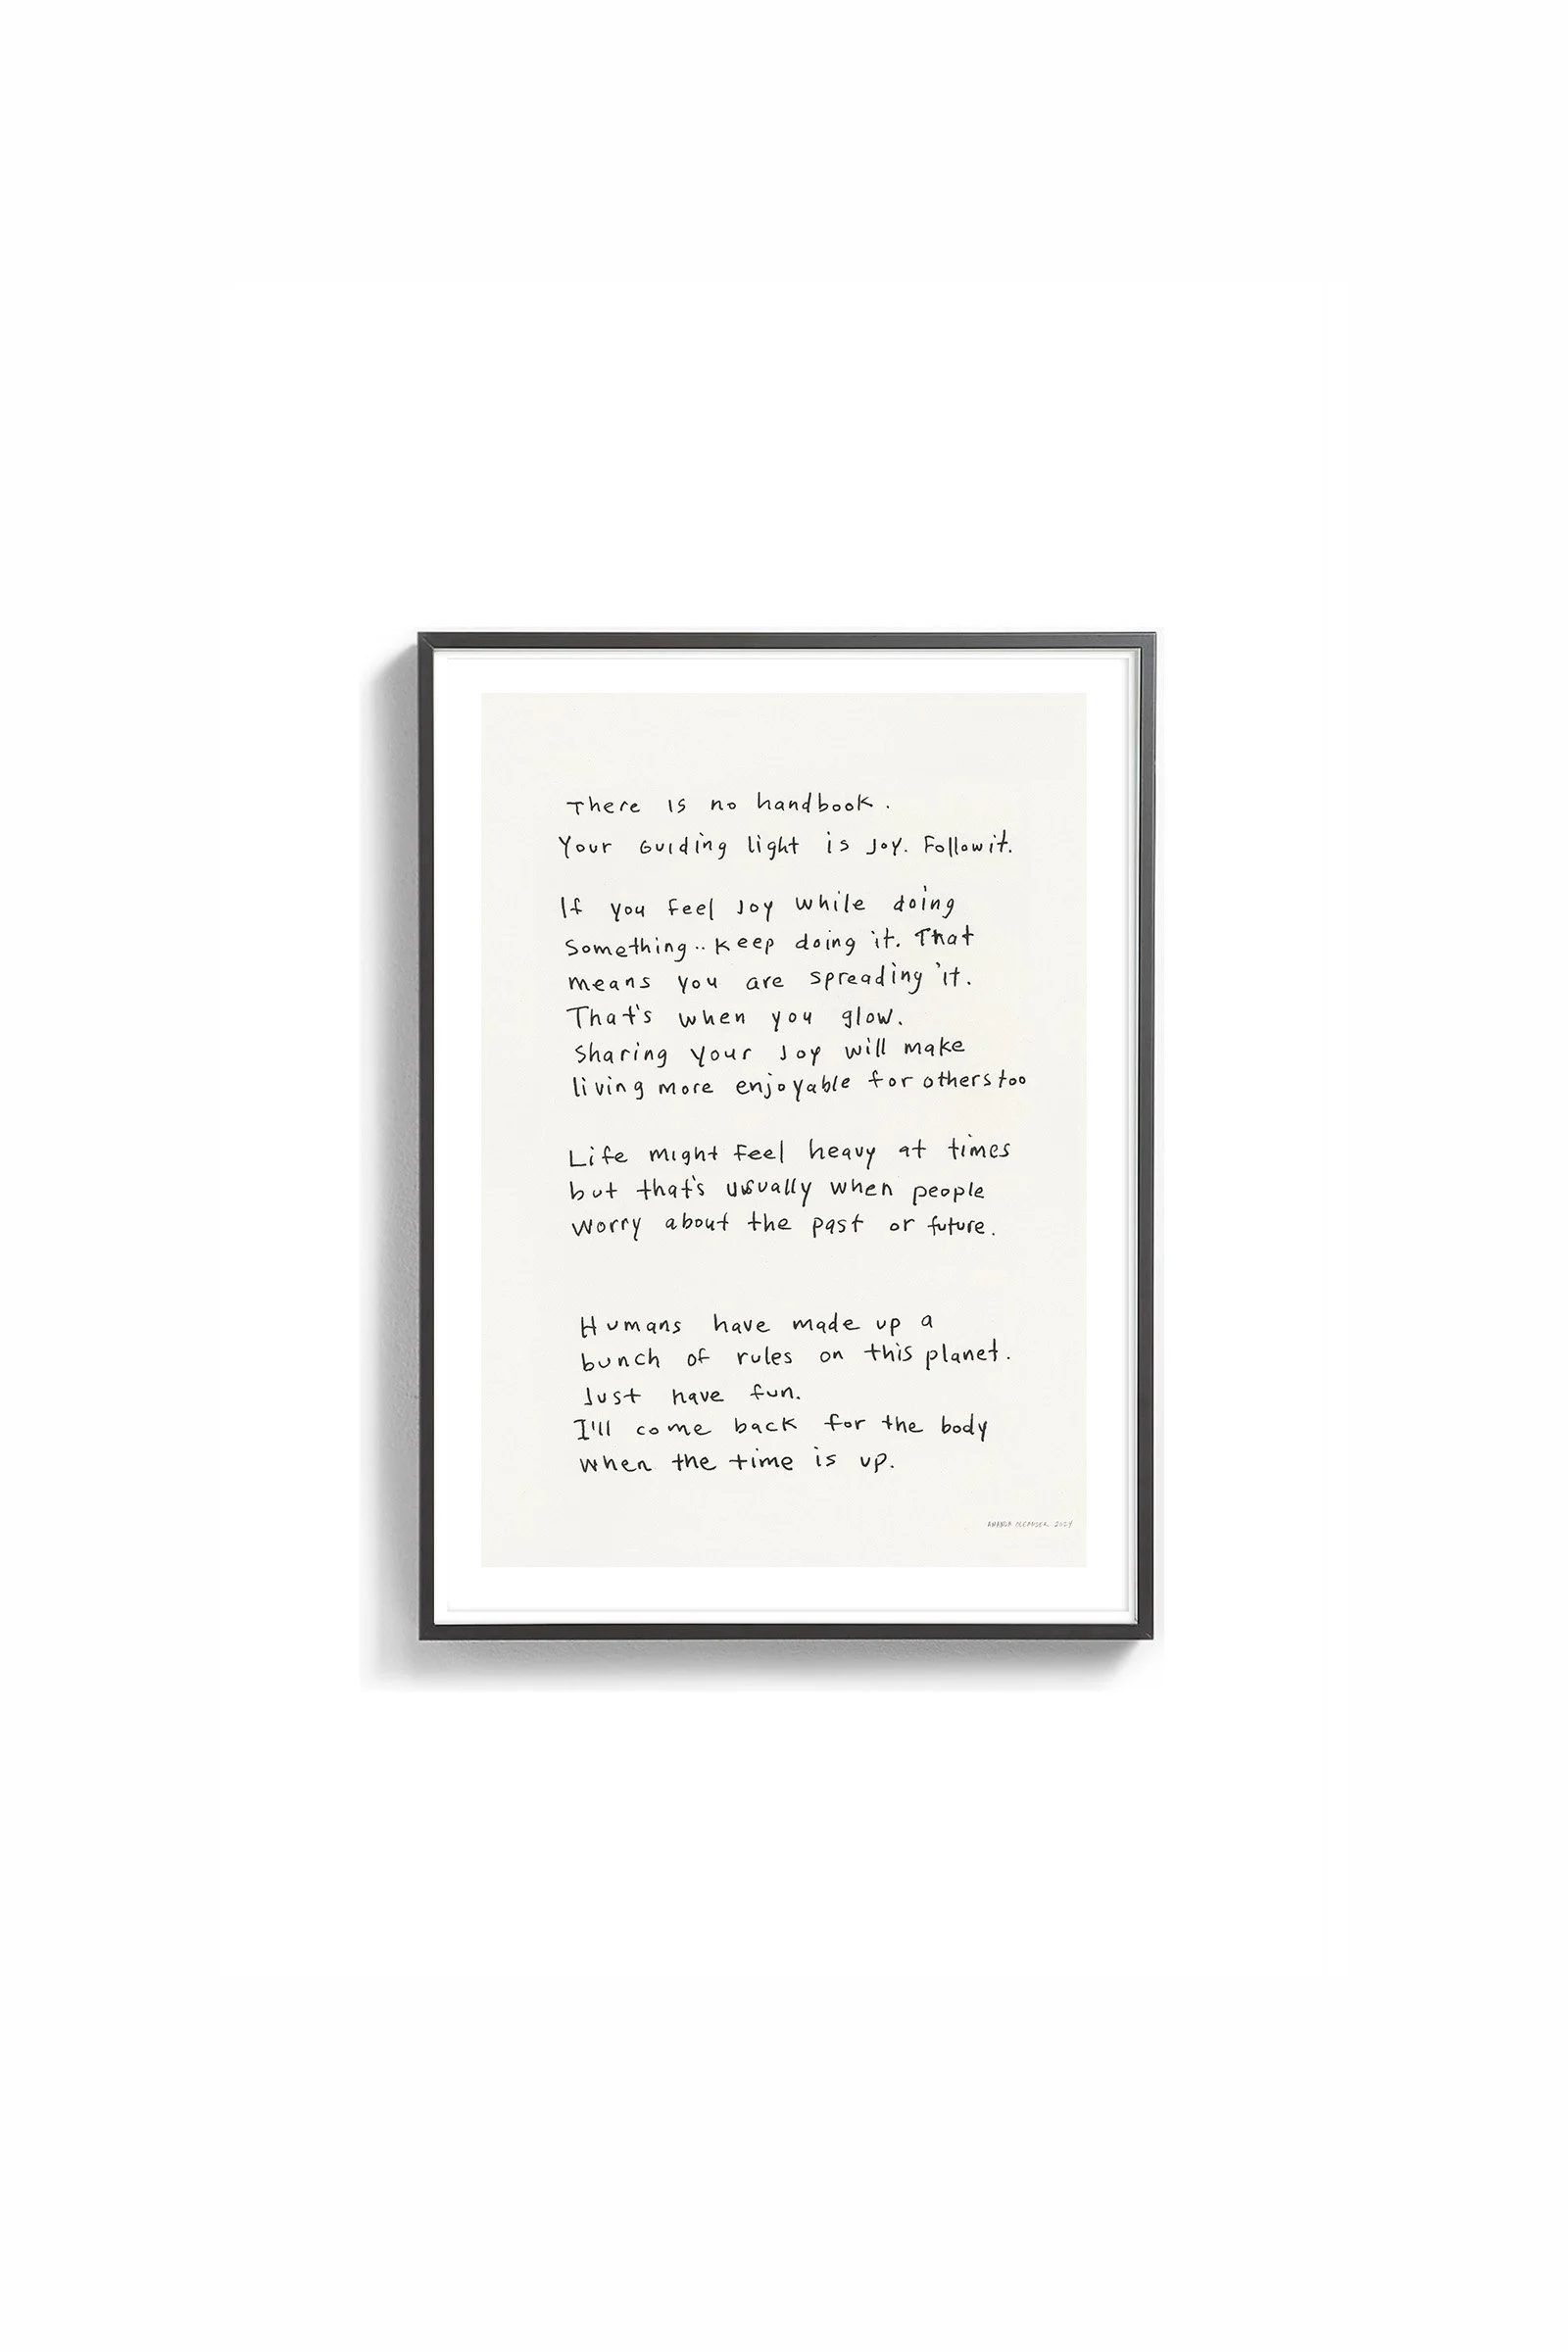 There is no handbook.
Your Guiding light is Joy. Follow it.
If you feel Joy while doing
Something.. keep doing it. That
means you are spreading it.
That's when you glow.
Sharing your Joy will make
living more enjoyable for others too
Life might feel heavy at times
but that's usually when people
worry about the past or future.
Humans have made up a
bunch of rules on this planet.
Just have fun.
I'll come back for the body
when the time is up.
AMANDA OLEANDER 2024